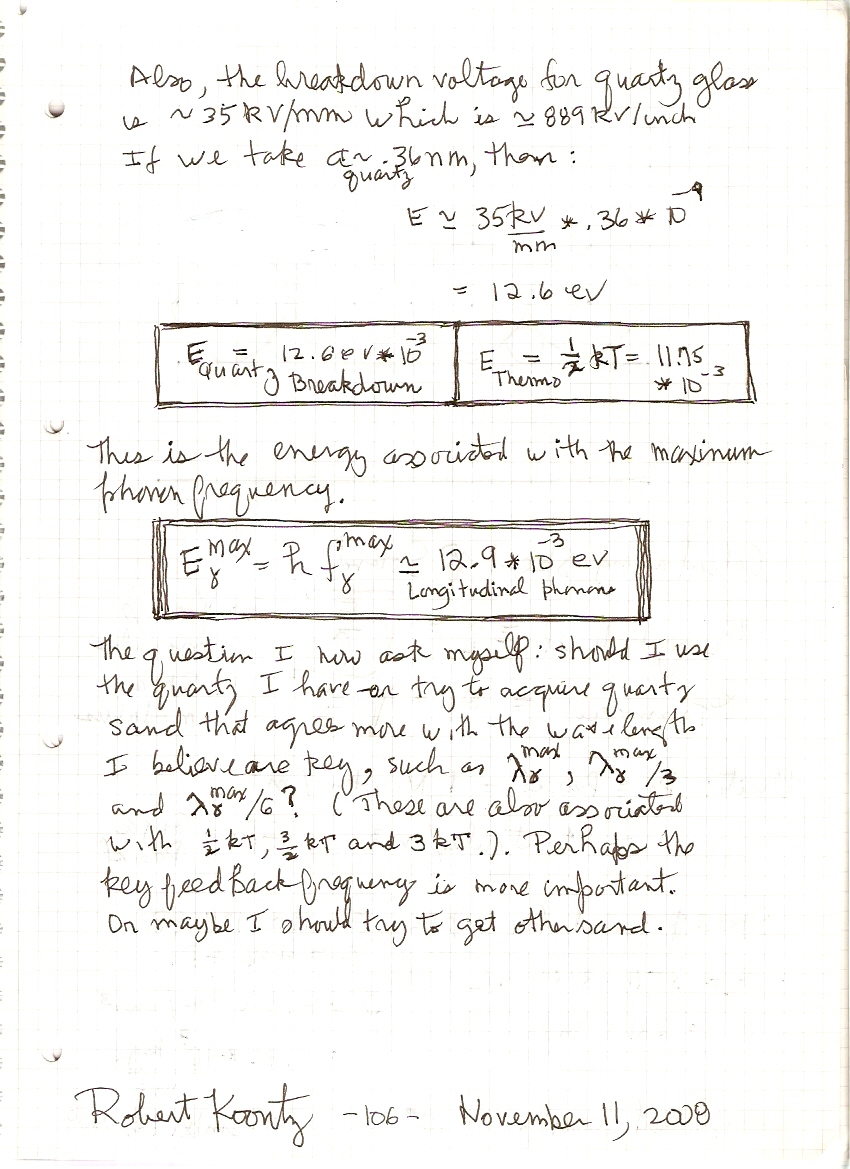 Also, the breakdown voltage for quartz glass
is ~35 kV/mm which is ≃ 889 kV/inch
If we take a quartz ~ .36nm, then:
E ≃ 35 kV/mm * .36 * 10^-9
= 12.6 ev
E Quartz Breakdown = 12.6 ev * 10^-3
E Thermo = 1/2 kT = 11.75 * 10^-3
This is the energy associated with the maximum
phonon frequency.
E_γ^max = h f_γ^max ≃ 12.9 * 10^-3 ev
Longitudinal phonons
The question I now ask myself: should I use
the quartz I have or try to acquire quartz
sand that agrees more with the wavelength
I believe are key, such as λ_γ^max, λ_γ^max/3
and λ_γ^max/6? (These are also associated
with 1/2 kT, 3/2 kT and 3 kT.). Perhaps the
key feedback frequency is more important.
Or maybe I should try to get other sand.
Robert Koontz -106- November 11, 2009